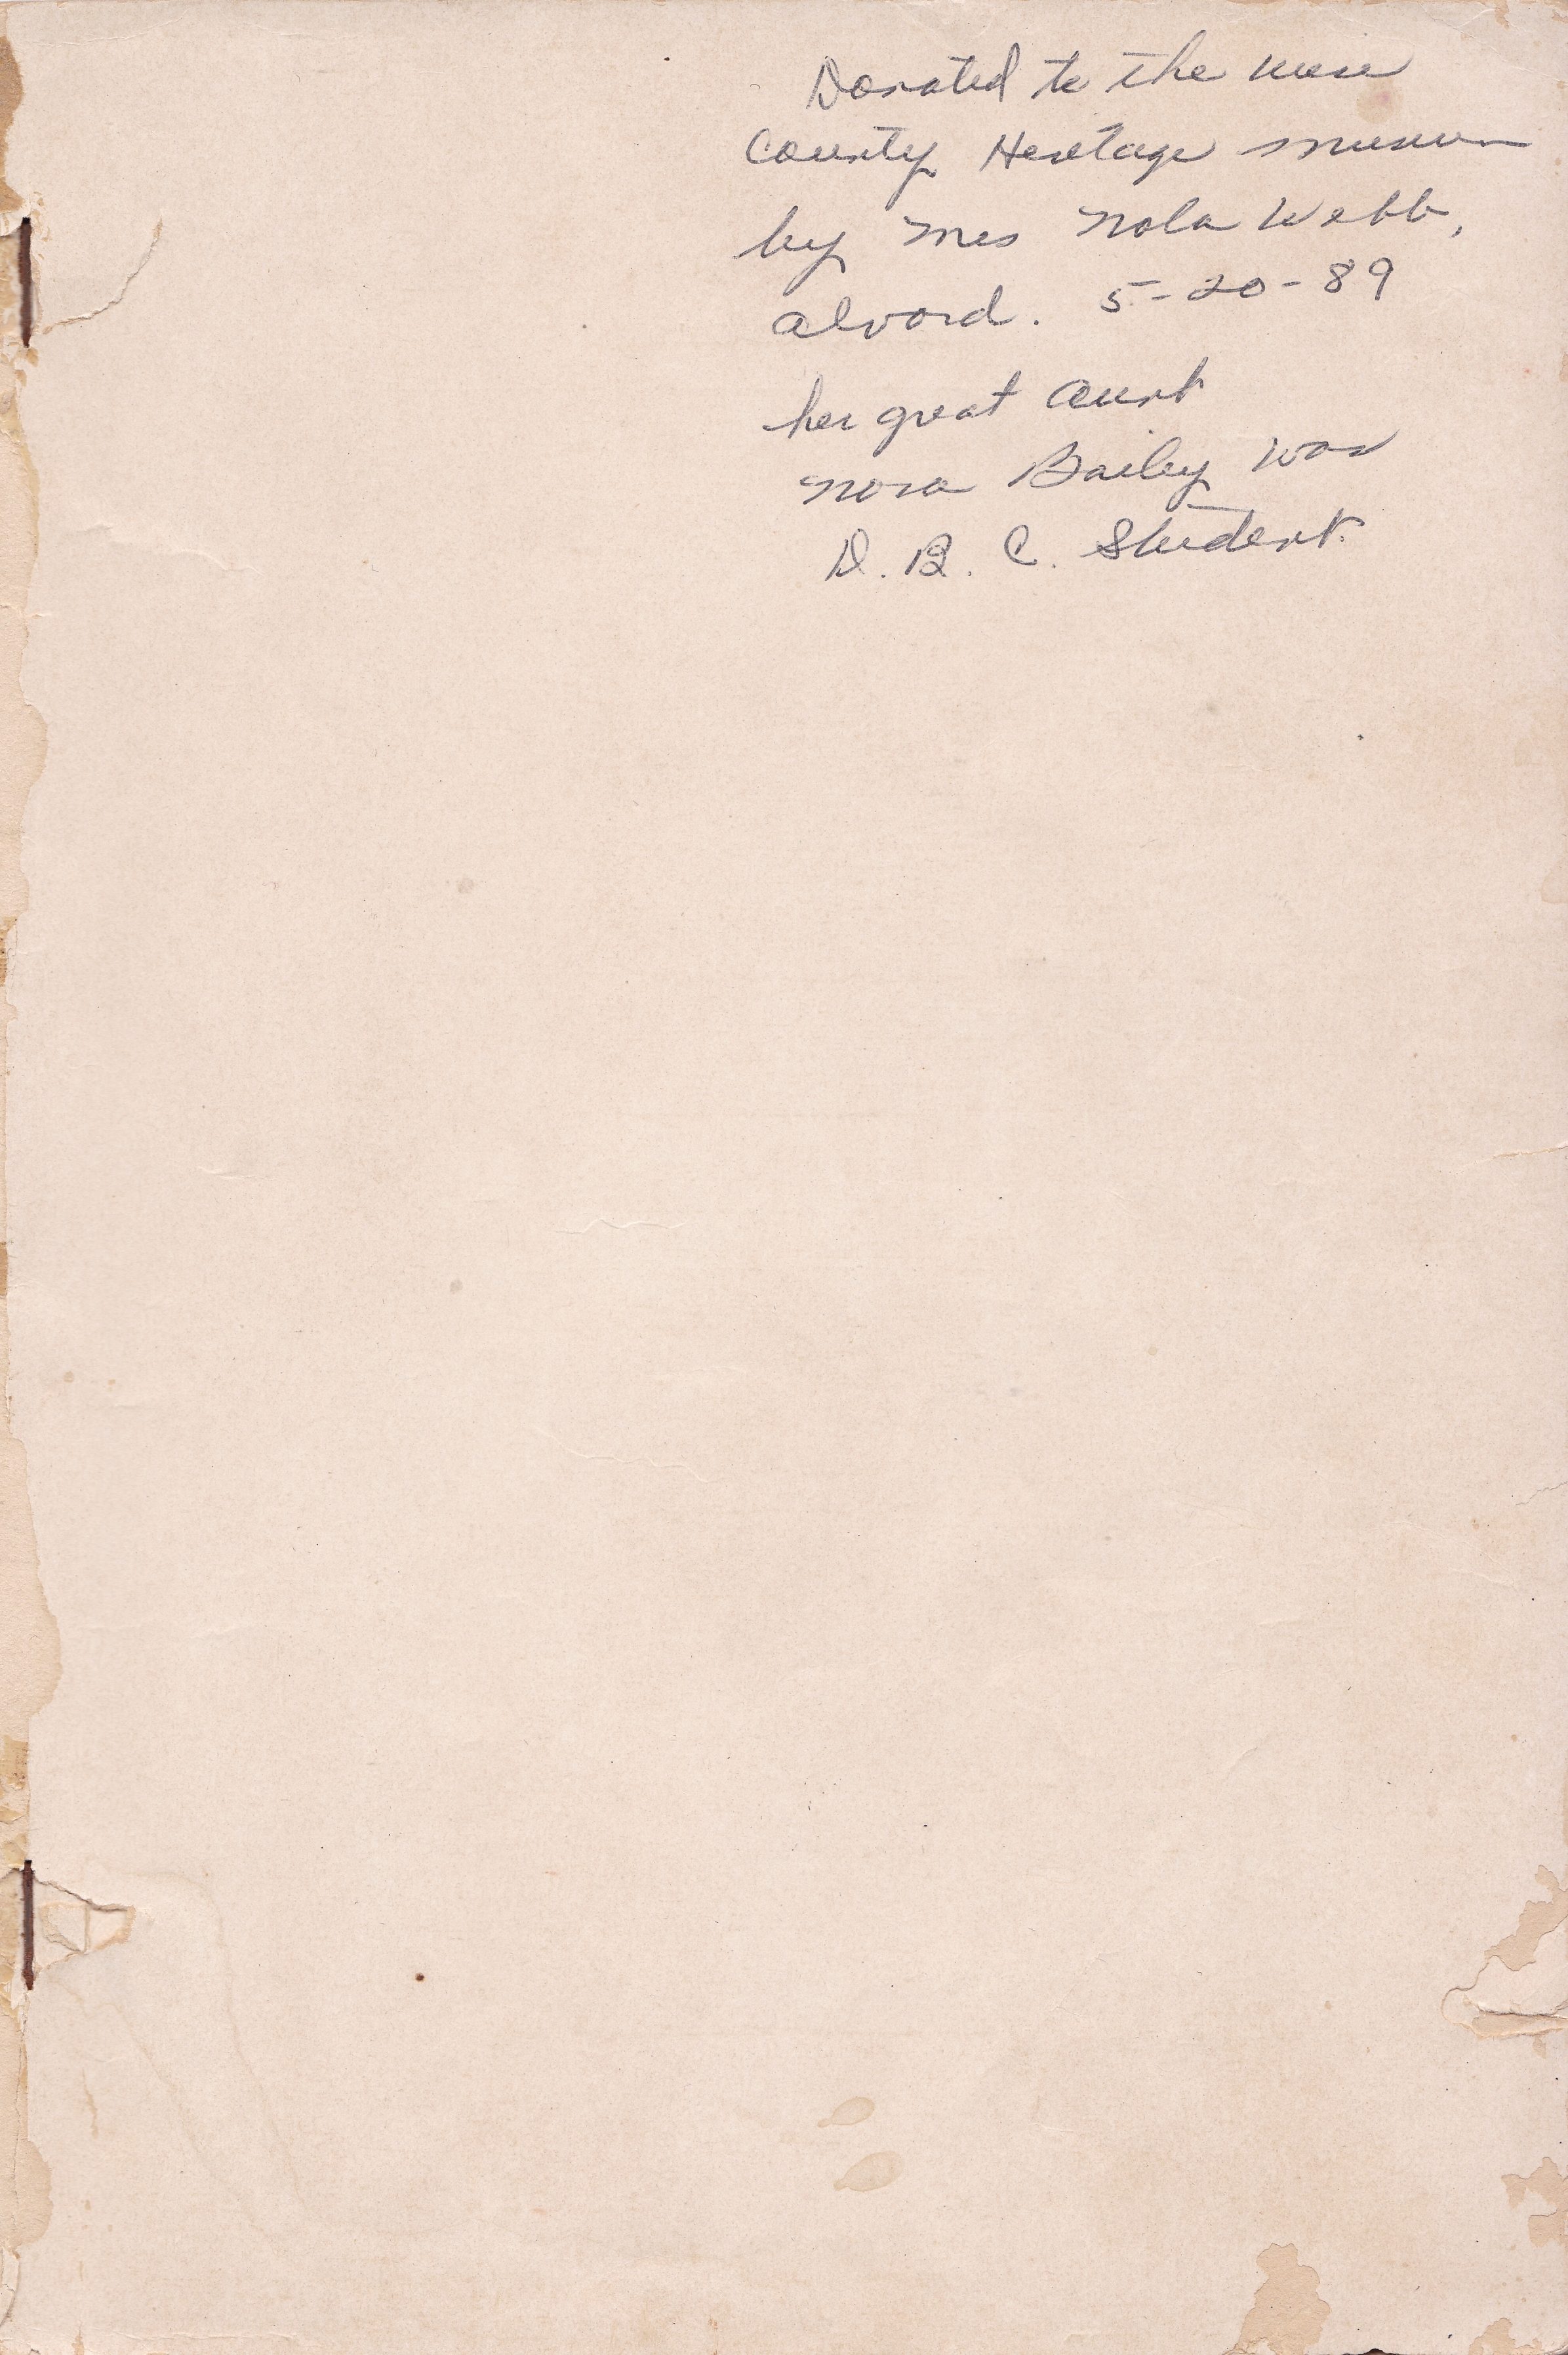 Donated to the Wise
County Heritage Museum
by Mrs Nola Webb,
Alvord. 5-20-89
her great Aunt
Nora Bailey was
D. B. C. Student.